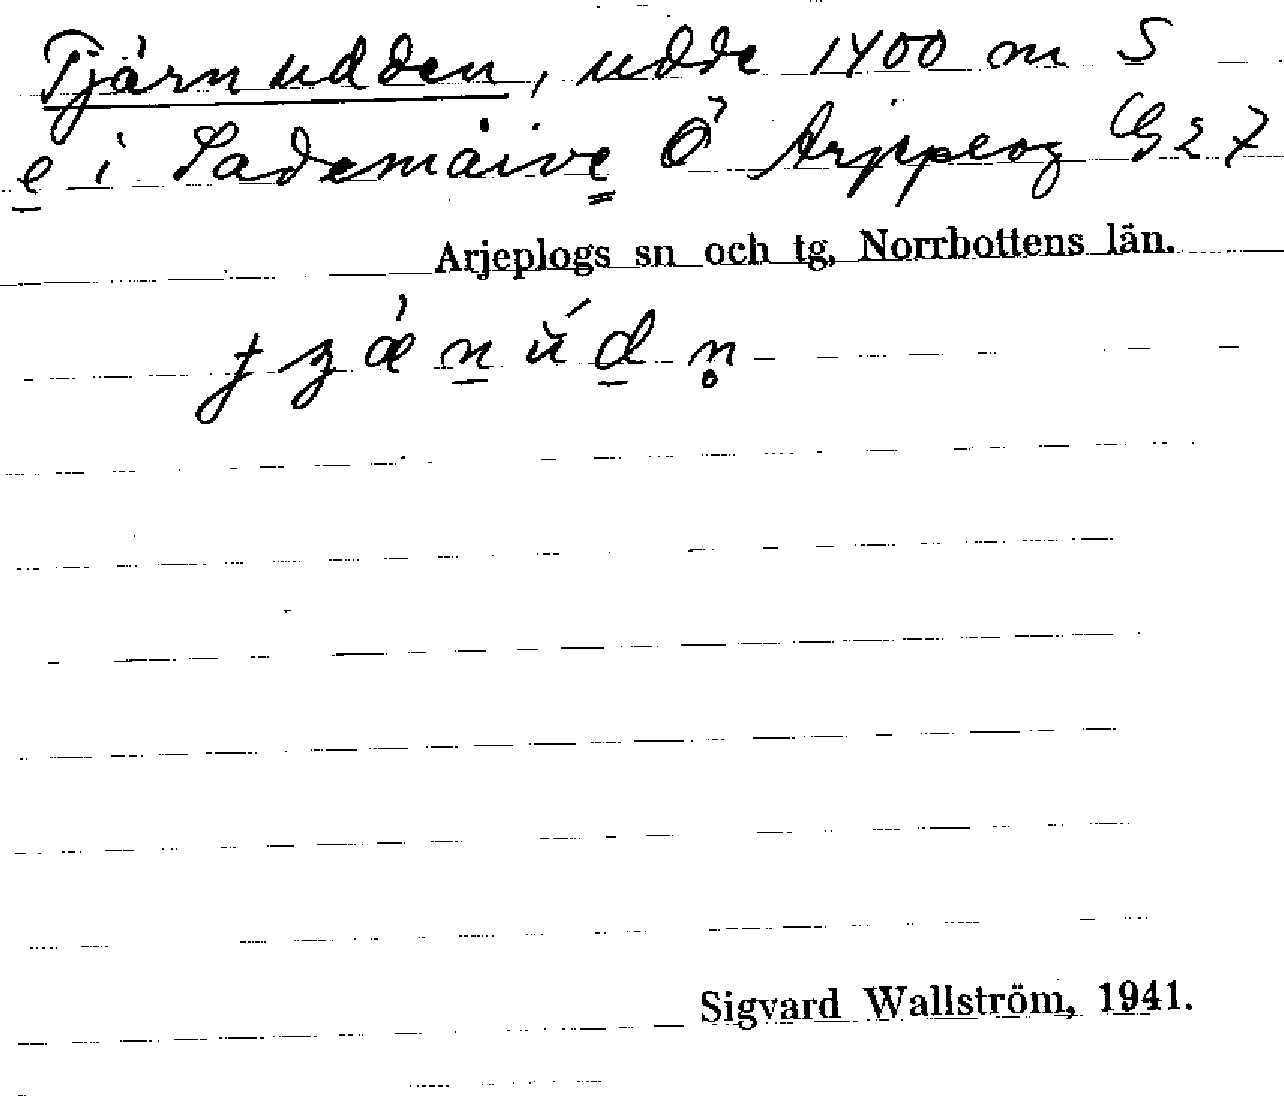 Tjärnudden, udde 1400 m S
e i Lademaive Ö Arjepeog G27
Arjeplogs sn och tg, Norrbottens län.
Sigvard Wallström, 1941.